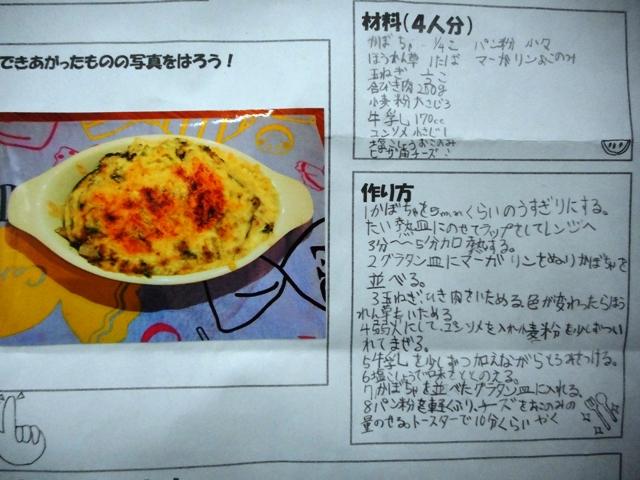 できあがったものの写真をはろう！
材料(4人分)
かぼちゃ 1/4こ パン粉 少々
ほうれん草 1たば マーガリン おこのみ
玉ねぎ 1/2こ
合びき肉 200g
小麦粉 大さじ3
牛乳 170cc
コンソメ 小さじ1
塩こしょう おこのみ
ピザ用チーズ
作り方
1かぼちゃを5mmくらいのうすぎりにする。
たい熱皿にのせてラップをしてレンジへ
3分〜5分加熱する。
2グラタン皿にマーガリンをぬりかぼちゃを
並べる。
3玉ねぎ、ひき肉をいためる、色が変わったらほう
れん草もいためる
4弱火にして、コンソメを入れ小麦粉を少しずつい
れてまぜる。
5牛乳を少しずつ加えながらとろみをつける。
6塩こしょうで味をととのえる。
7かぼちゃを並べたグラタン皿に入れる。
8パン粉を軽くふり、チーズをおこのみの
量のせる。トースターで10分くらいやく